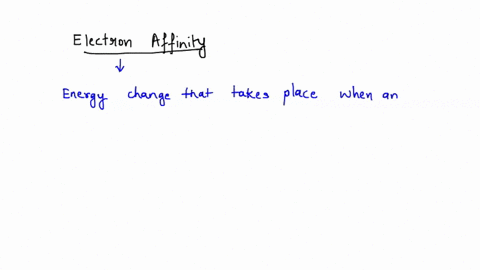 Electron Affinity
↓
Energy change that takes place when an